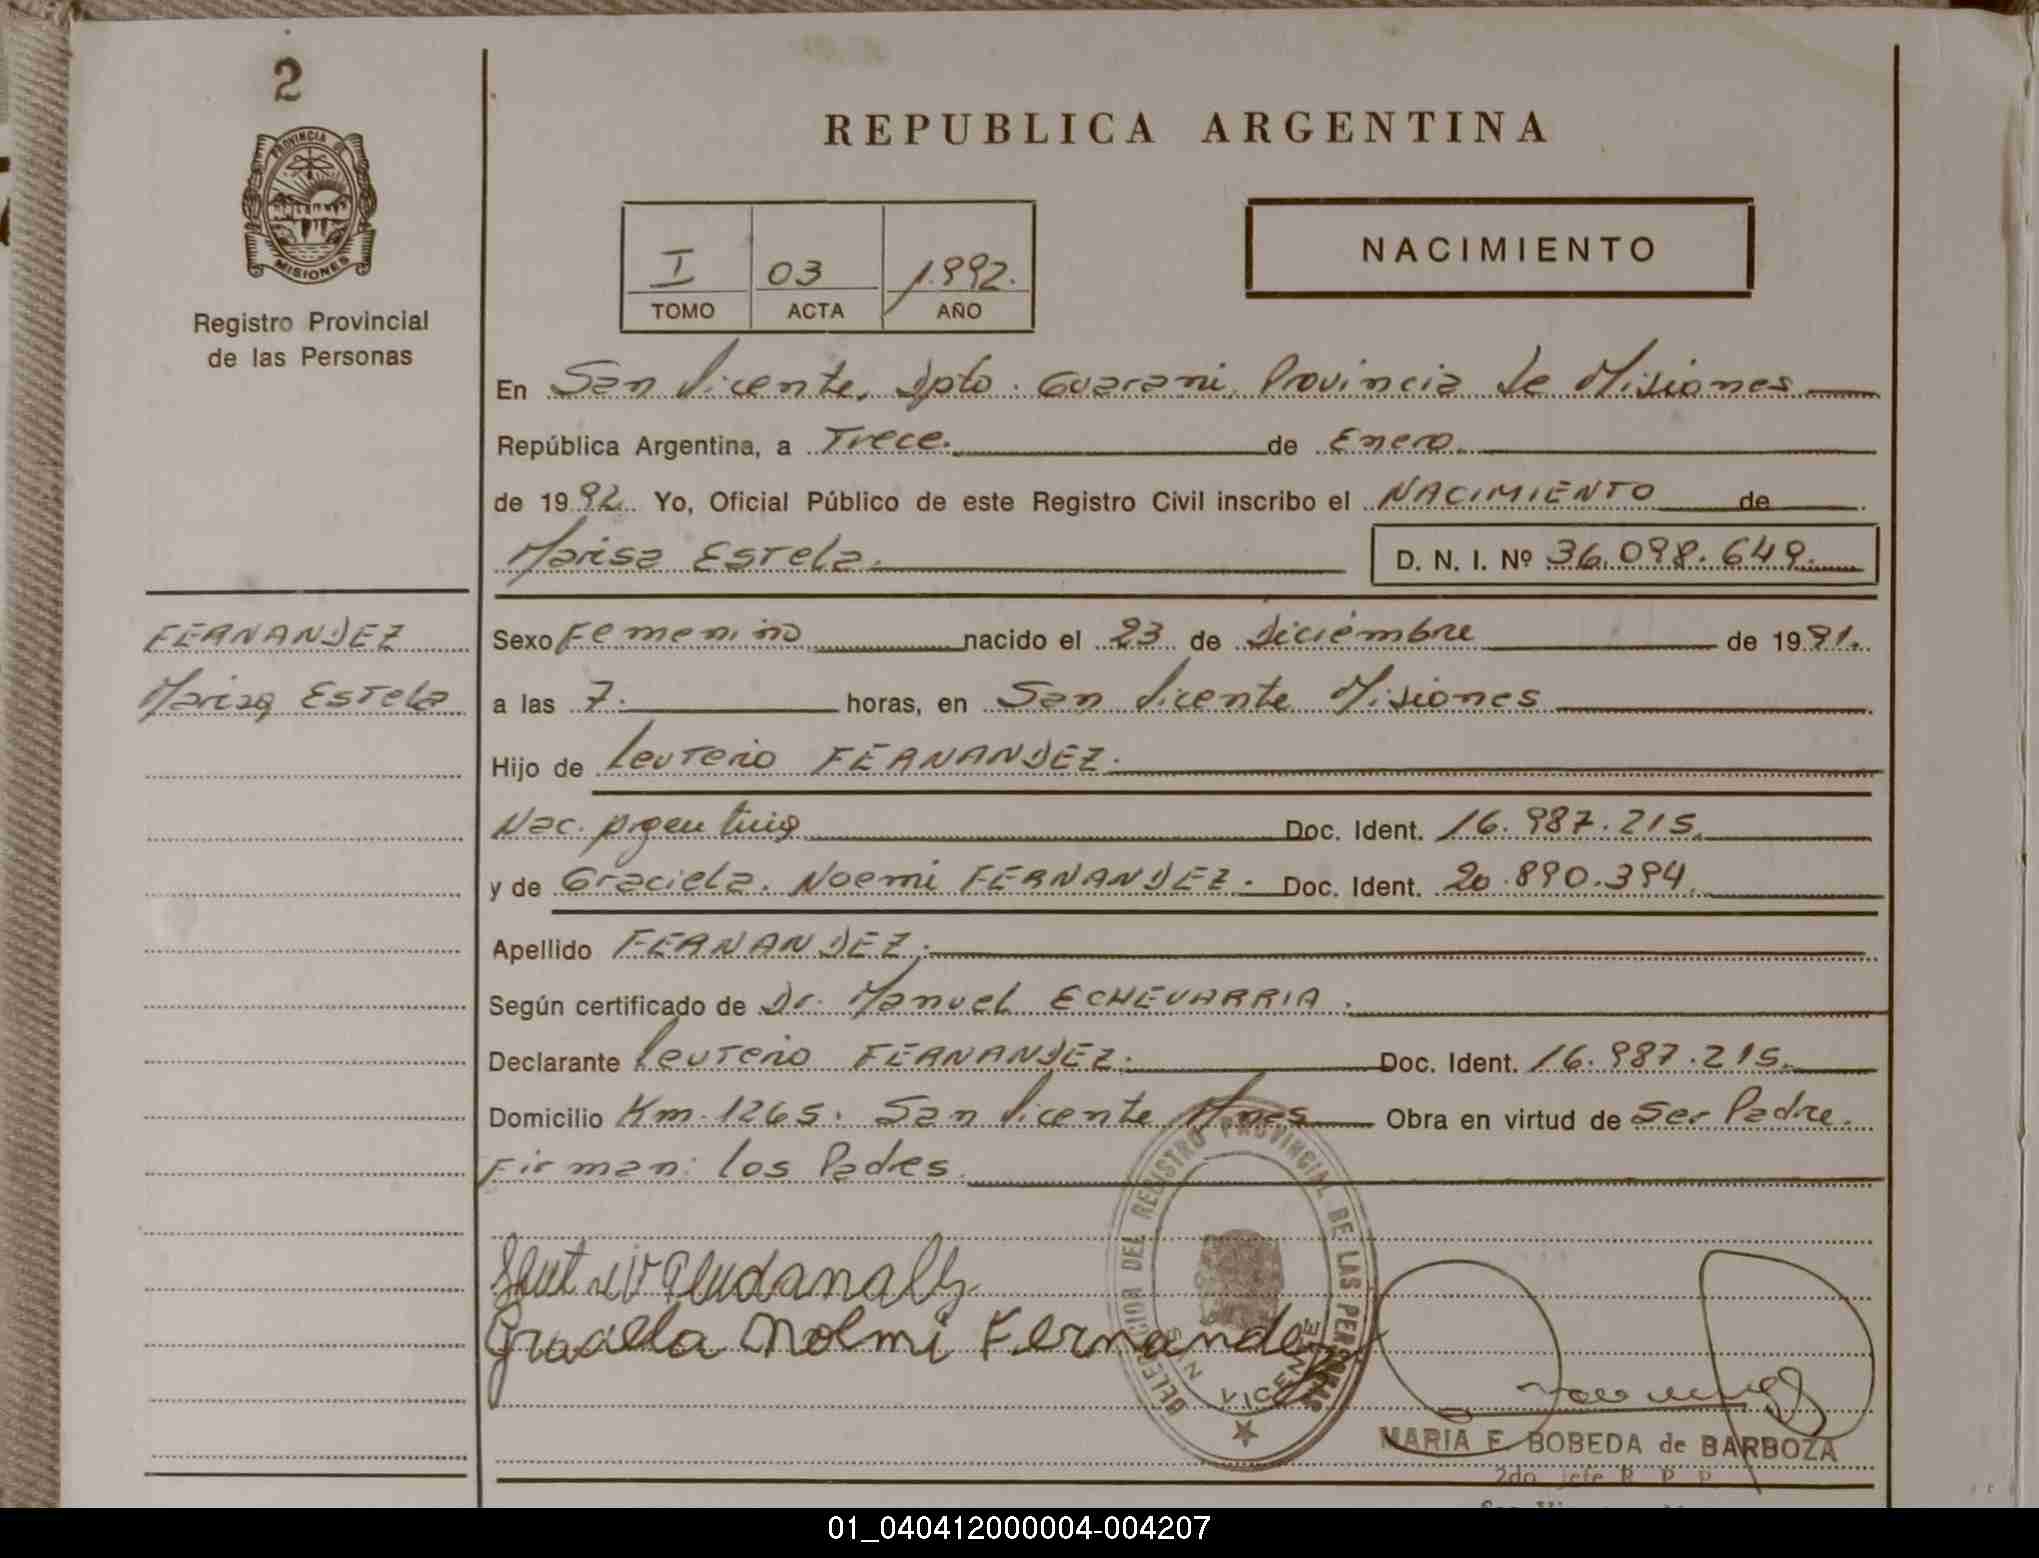 2
PROVINCIA DE
MISIONES
Registro Provincial
de las Personas
REPUBLICA ARGENTINA
I 03 1.992.
TOMO ACTA AÑO
NACIMIENTO
En San Vicente, Dpto. Guarani, Provincia de Misiones
República Argentina, a Trece. de Enero.
de 1992. Yo, Oficial Público de este Registro Civil inscribo el NACIMIENTO de
Marisa Estela. D. N. I. Nº 36.098.649.
FERNANDEZ
Marisa Estela
Sexo Femenino nacido el 23 de Diciembre de 1991.
a las 7. horas, en San Vicente Misiones
Hijo de Leuterio FERNANDEZ.
Nac. Argentina Doc. Ident. 16.987.215.
y de Graciela Noemi FERNANDEZ. Doc. Ident. 20.890.394.
Apellido FERNANDEZ.
Según certificado de Dr. Manuel ECHEVARRIA.
Declarante Leuterio FERNANDEZ. Doc. Ident. 16.987.215.
Domicilio Km. 1265. San Vicente Mnes Obra en virtud de Ser Padre.
Firman: los Padres.
Graciela Noemi Fernandez
DEL REGISTRO PROVINCIAL DE LAS PERSONAS
VICENTE
MARIA E. BOBEDA de BARBOZA
2do. Jefe R. P. P.
01_040412000004-004207